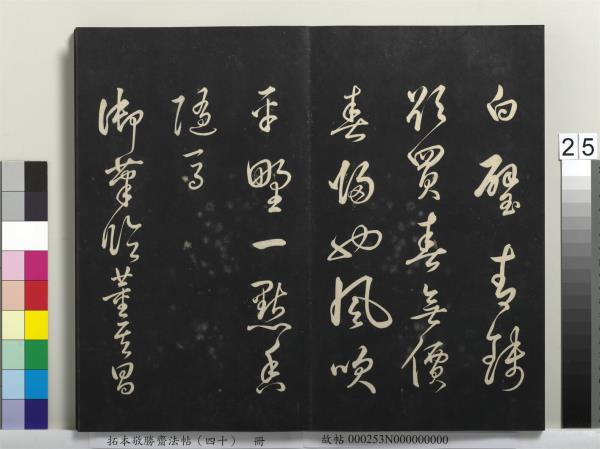 白璧青錢
欲買春無價
春歸也風吹
平野一點香
隨馬
御筆臨董其昌
25
拓本敬勝齋法帖（四十） 冊 故帖000253N000000000